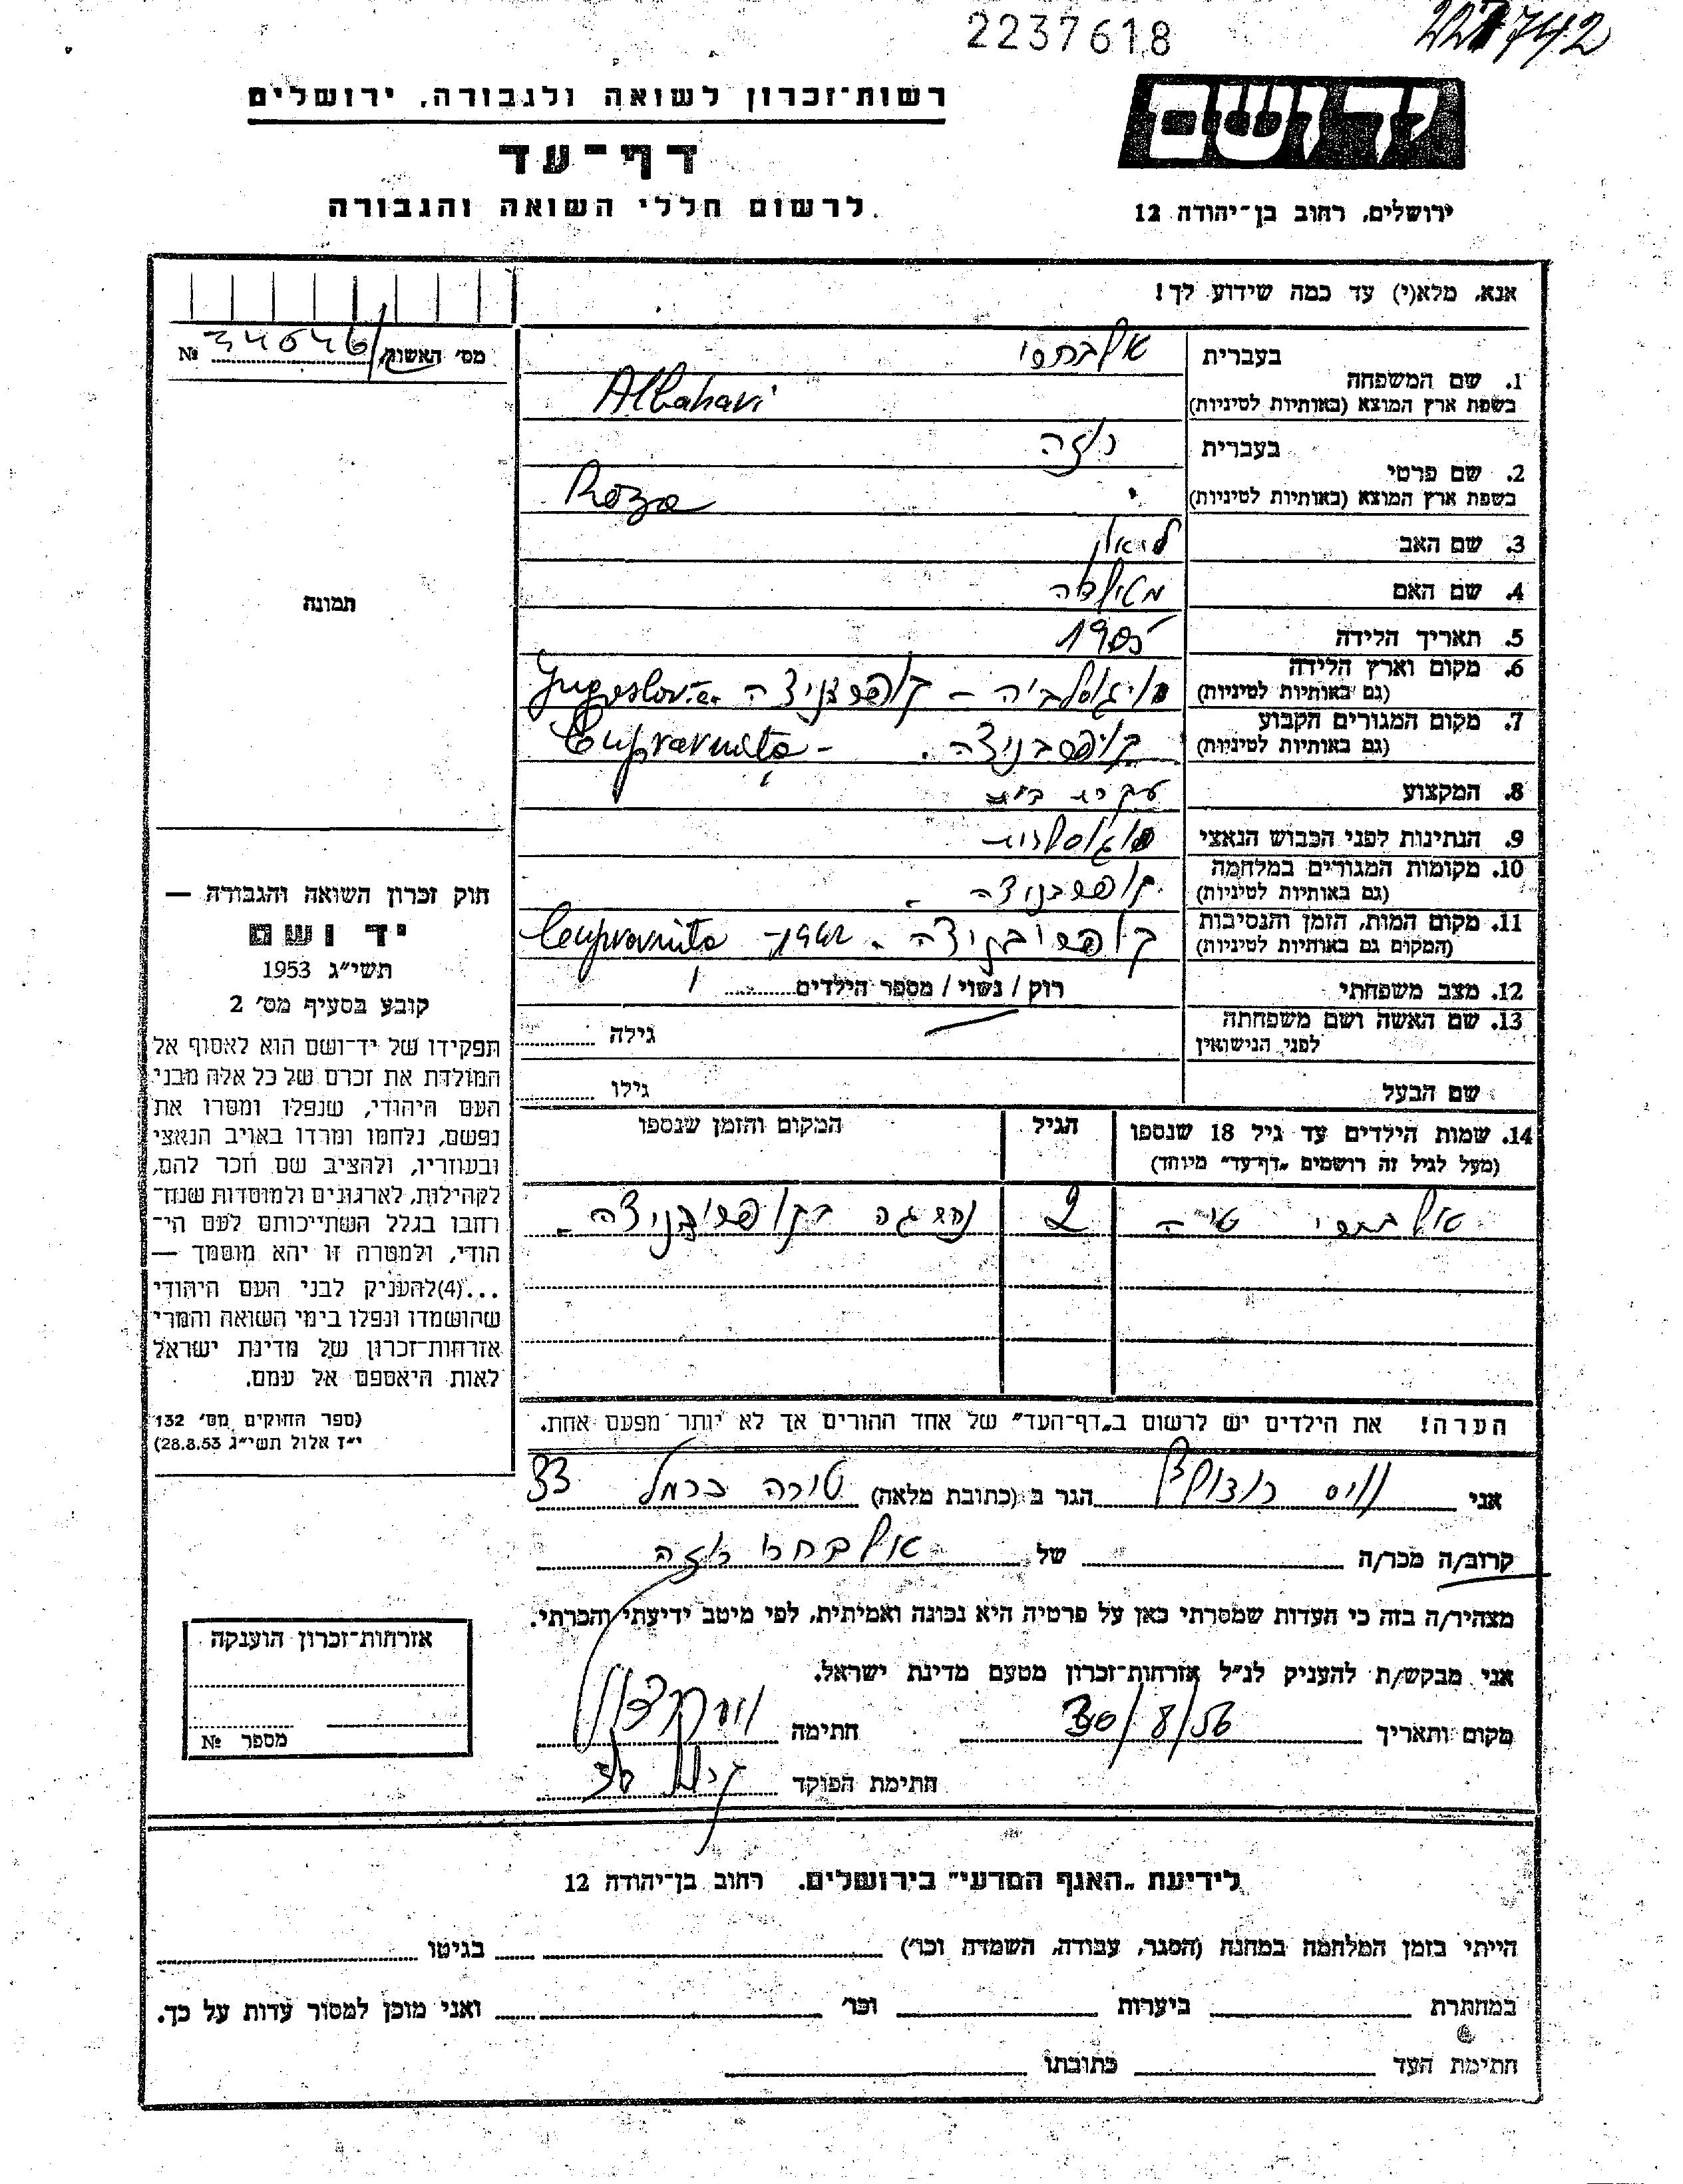 2237618
227742
רשות־זכרון לשואה ולגבורה, ירושלים
דף־עד
לרשום חללי השואה והגבורה
יד ושם
ירושלים, רחוב בן־יהודה 12
אנא, מלא(י) עד כמה שידוע לך!
מס' האשוק № 34546
תמונה
1. שם המשפחה
בעברית אלבחרי
בשפת ארץ המוצא (באותיות לטיניות) Albahari
2. שם פרטי
בעברית רוזה
בשפת ארץ המוצא (באותיות לטיניות) Roza
3. שם האב
4. שם האם מטילדה
5. תאריך הלידה 1905
6. מקום וארץ הלידה
(גם באותיות לטיניות)
7. מקום המגורים הקבוע
(גם באותיות לטיניות)
8. המקצוע עקרת בית
9. הנתינות לפני הכבוש הנאצי
10. מקומות המגורים במלחמה
(גם באותיות לטיניות)
11. מקום המות, הזמן והנסיבות 1942
(המקום גם באותיות לטיניות)
12. מצב משפחתי רוק / נשוי / מספר הילדים 1
13. שם האשה ושם משפחתה גילה
לפני הנישואין
שם הבעל גילו
14. שמות הילדים עד גיל 18 שנספו הגיל המקום והזמן שנספו
(מעל לגיל זה רושמים „דף־עד" מיוחד)
אלבחרי 2
הערה! את הילדים יש לרשום ב„דף־העד" של אחד ההורים אך לא יותר מפעם אחת.
חוק זכרון השואה והגבורה —
יד ושם
תשי״ג 1953
קובע בסעיף מס' 2
תפקידו של יד־ושם הוא לאסוף אל
המולדת את זכרם של כל אלה מבני
העם היהודי, שנפלו ומסרו את
נפשם, נלחמו ומרדו באויב הנאצי
ובעוזריו, ולהציב שם וזכר להם,
לקהילות, לארגונים ולמוסדות שנח־
רחבו בגלל השתייכותם לעם הי־
הודי, ולמטרה זו יהא מוסמך —
...(4) להעניק לבני העם היהודי
שהושמדו ונפלו בימי השואה והמרי
אזרחות־זכרון של מדינת ישראל
לאות היאספם אל עמם.
(ספר החוקים מס' 132
י״ז אלול תשי״ג 28.8.53)
אני הגר ב (כתובת מלאה) טירה כרמל 33
קרוב/ה מכר/ה של אלבחרי רוזה
מצהיר/ה בזה כי העדות שמסרתי כאן על פרטיה היא נכונה ואמיתית, לפי מיטב ידיעתי והכרתי.
אני מבקש/ת להעניק לנ״ל אזרחות־זכרון מטעם מדינת ישראל.
מקום ותאריך 30/8/56 חתימה
חתימת הפוקד
אזרחות־זכרון הוענקה
מספר №
לידיעת „האגף המדעי" בירושלים. רחוב בן־יהודה 12
הייתי בזמן המלחמה במחנה (הסגר, עבודה, השמדה וכו') בגיטו
במחתרת ביערות וכו' ואני מוכן למסור עדות על כך.
חתימת העד כתובתו